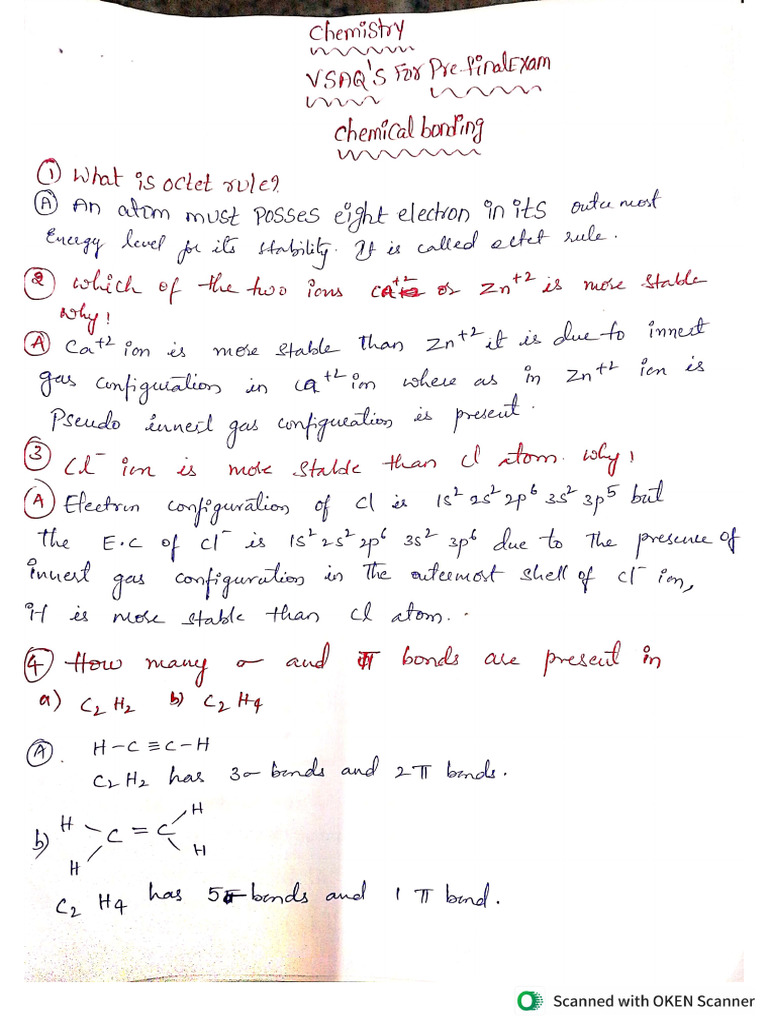 Chemistry
VSAQ's For Pre-finalExam
chemical bonding
① What is octet rule?
Ⓐ An atom must posses eight electron in its outer most
Energy level for its stability. It is called octet rule.
② which of the two ions ca+2 or Zn+2 is more stable
why!
Ⓐ Ca+2 ion is more stable than Zn+2 it is due to innert
gas configuration in ca+2 ion where as in Zn++ ion is
Pseudo innert gas configuration is present.
③ Cl- ion is more stable than cl atom. why!
Ⓐ Electron configuration of cl is 1s² 2s² 2p⁶ 3s² 3p⁵ but
the E.C of cl- is 1s² 2s² 2p⁶ 3s² 3p⁶ due to the presence of
innert gas configuration in the outermost shell of cl- ion,
it is more stable than cl atom..
④ How many σ and π bonds are present in
a) C₂ H₂ b) C₂ H₄
Ⓐ. H-C≡C-H
C₂H₂ has 3σ bonds and 2π bonds.
b) H H
C = C
H H
C₂ H₄ has 5σ bonds and 1 π bond.
Scanned with OKEN Scanner